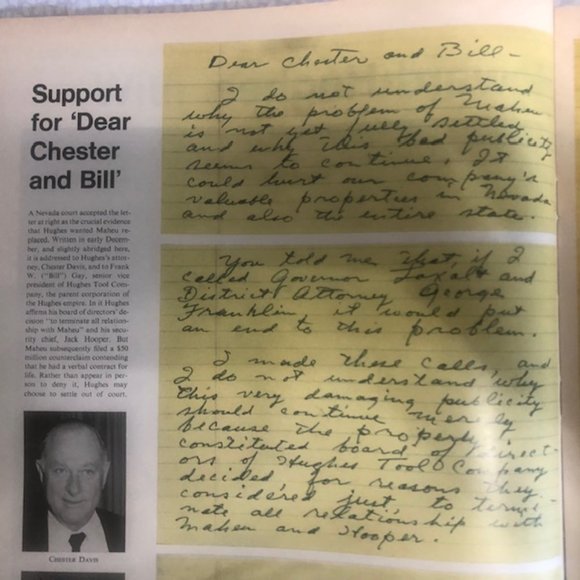 Support
for 'Dear
Chester
and Bill'
A Nevada court accepted the let-
ter at right as the crucial evidence
that Hughes wanted Maheu re-
placed. Written in early Decem-
ber, and slightly abridged here,
it is addressed to Hughes's attor-
ney, Chester Davis, and to Frank
W. ("Bill") Gay, senior vice
president of Hughes Tool Com-
pany, the parent corporation of
the Hughes empire. In it Hughes
affirms his board of directors' de-
cision "to terminate all relation-
ship with Maheu" and his secu-
rity chief, Jack Hooper. But
Maheu subsequently filed a $50
million counterclaim contending
that he had a verbal contract for
life. Rather than appear in per-
son to deny it, Hughes may
choose to settle out of court.
CHESTER DAVIS
Dear Chester and Bill -
I do not understand
why the problem of Maheu
is not yet fully settled
and why this bad publicity
seems to continue. It
could hurt our company's
valuable properties in Nevada
and also the entire state.
You told me that, if I
called Governor Laxalt and
District Attorney George
Franklin, it would put
an end to this problem.
I made these calls, and
I do not understand why
this very damaging publicity
should continue merely
because the properly
constituted board of direct-
ors of Hughes Tool Company
decided, for reasons they
considered just, to termi-
nate all relationship with
Maheu and Hooper.